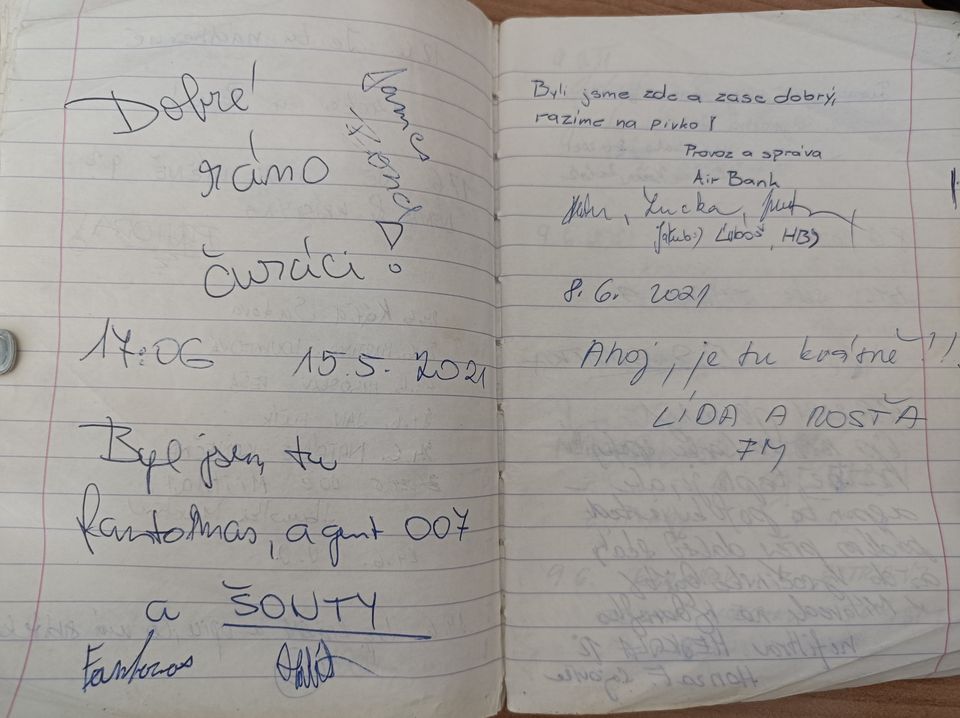 Dobré
ráno
čuráci
James
Bond
17:06 15.5. 2021
Byl jsem tu
Fantomas, agent 007
a ŠOUTY
Fantomas
Byli jsme zde a zase dobrý,
razíme na pivko!
Provoz a správa
Air Bank
, Lucka,
Jakub:) Luboš, HBJ
8. 6. 2021
Ahoj, je tu krásně!!!
LÍDA A ROSŤA
FM